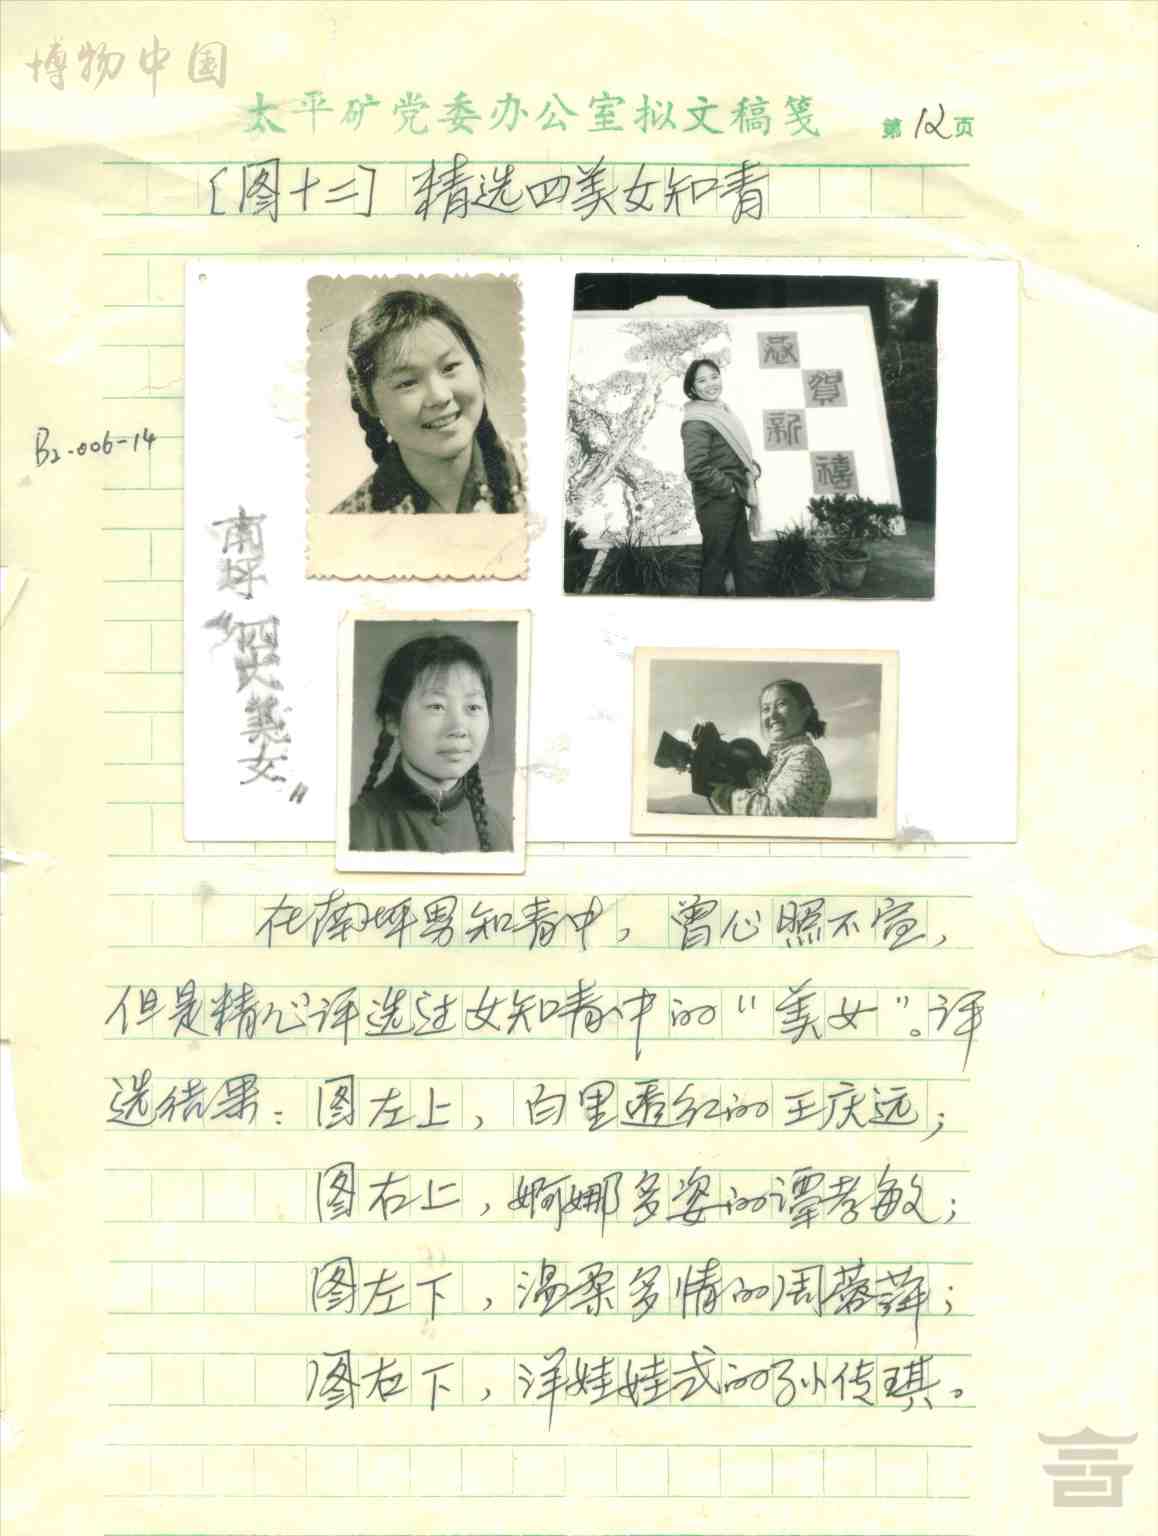 博物中国
太平矿党委办公室拟文稿笺 第12页
〔图十二〕精选四美女知青
恭
賀
新
禧
B2-006-14
南坪“四大美女”
在南坪男知青中，曾心照不宣，
但是精心评选过女知青中的“美女”。评
选结果：图左上，白里透红的王庆远；
图右上，婀娜多姿的谭孝敏；
图左下，温柔多情的周蓉萍；
图右下，洋娃娃式的孙传琪。